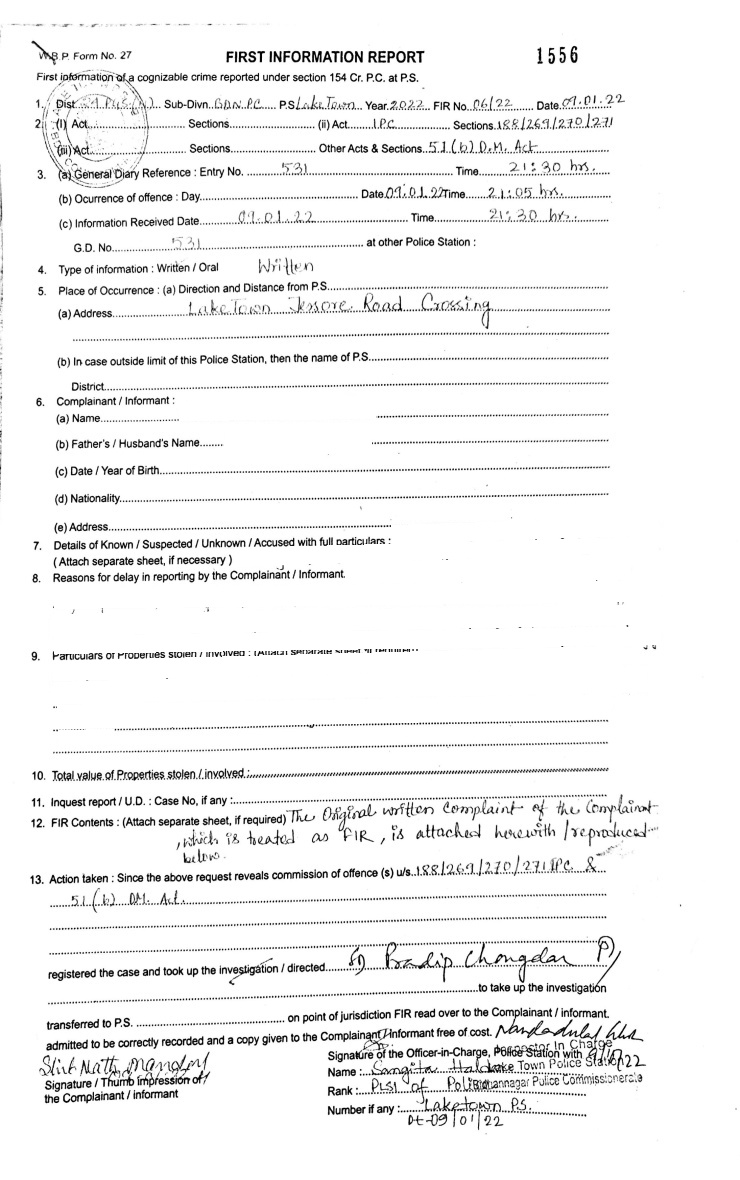 W.B.P. Form No. 27
FIRST INFORMATION REPORT
1556
First information of a cognizable crime reported under section 154 Cr. P.C. at P.S.
1. Dist. Sub-Divn. P.S Lake Town Year 2022 FIR No. 06/22 Date 09.01.22
2. (I) Act Sections (ii) Act IPC Sections 188/269/270/271
(iii) Act Sections Other Acts & Sections 51(b) D.M. Act
3. (a) General Diary Reference : Entry No. 531 Time 21:30 hrs.
(b) Ocurrence of offence : Day Date 09.01.22 Time 21:05 hrs.
(c) Information Received Date 09.01.22 Time 21:30 hrs.
G.D. No 531 at other Police Station :
4. Type of information : Written / Oral Written
5. Place of Occurrence : (a) Direction and Distance from P.S
(a) Address Lake Town Jessore Road Crossing
(b) In case outside limit of this Police Station, then the name of P.S
District
6. Complainant / Informant :
(a) Name
(b) Father's / Husband's Name
(c) Date / Year of Birth
(d) Nationality
(e) Address
7. Details of Known / Suspected / Unknown / Accused with full particulars :
( Attach separate sheet, if necessary )
8. Reasons for delay in reporting by the Complainant / Informant.
9. Particulars of Properties stolen / involved : (Attach separate sheet if
10. Total value of Properties stolen / involved :
11. Inquest report / U.D. : Case No, if any :
12. FIR Contents : (Attach separate sheet, if required) The Original written complaint of the Complainant
, which is treated as FIR, is attached herewith / reproduced
below.
13. Action taken : Since the above request reveals commission of offence (s) u/s. 188/269/270/271 IPC &
51 (b) DM. Act.
registered the case and took up the investigation / directed Pradip Chongdar
to take up the investigation
transferred to P.S. on point of jurisdiction FIR read over to the Complainant / informant.
admitted to be correctly recorded and a copy given to the Complainant / Informant free of cost.
Signature of the Officer-in-Charge, Police Station with
Inspector In Charge
Name : Sangita Halder
Lake Town Police Station
Rank : of Police
Bidhannagar Police Commissionerate
Number if any : Laketown P.S.
Dt-09/01/22
Signature / Thumb impression of
the Complainant / informant